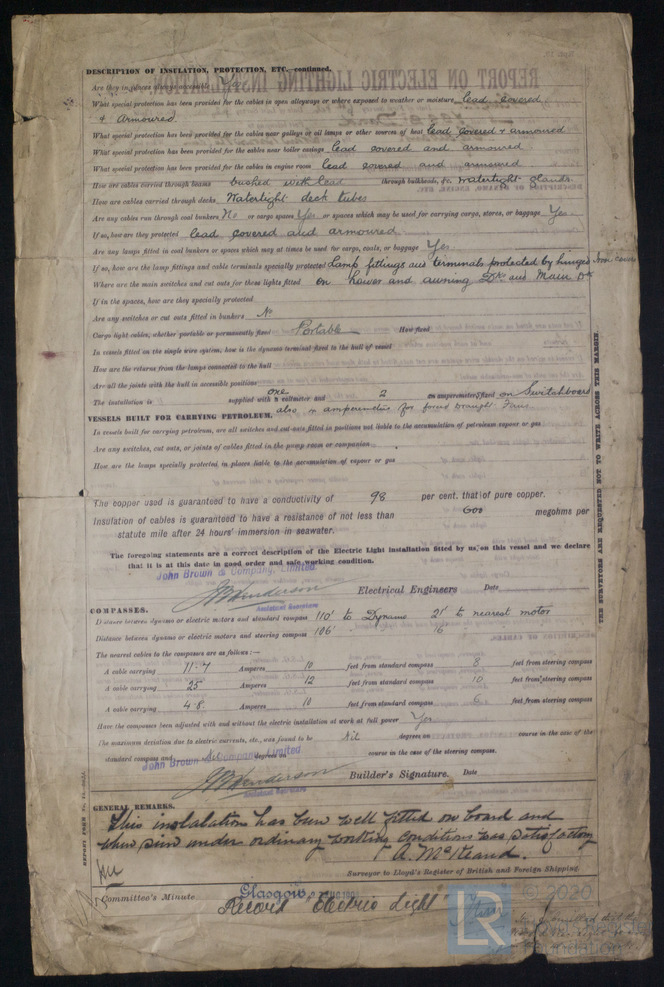 DESCRIPTION OF INSULATION, PROTECTION, ETC.—continued.
Are they in places always accessible Yes
What special protection has been provided for the cables in open alleyways or where exposed to weather or moisture lead covered
& Armoured.
What special protection has been provided for the cables near galleys or oil lamps or other sources of heat lead covered & armoured
What special protection has been provided for the cables near boiler casings lead covered and armoured
What special protection has been provided for the cables in engine room lead covered and armoured
How are cables carried through beams bushed with lead through bulkheads, &c. Watertight glands
How are cables carried through decks Watertight deck tubes
Are any cables run through coal bunkers No or cargo spaces Yes or spaces which may be used for carrying cargo, stores, or baggage Yes
If so, how are they protected lead covered and armoured
Are any lamps fitted in coal bunkers or spaces which may at times be used for cargo, coals, or baggage Yes.
If so, how are the lamp fittings and cable terminals specially protected Lamp fittings and terminals protected by hinged iron cover
Where are the main switches and cut outs for these lights fitted on lower and awning Dks and Main Dk
If in the spaces, how are they specially protected
Are any switches or cut outs fitted in bunkers No
Cargo light cables, whether portable or permanently fixed Portable How fixed
In vessels fitted on the single wire system, how is the dynamo terminal fixed to the hull of vessel
How are the returns from the lamps connected to the hull
Are all the joints with the hull in accessible positions
The installation is supplied with one voltmeter and 2 an amperemeter, fixed on Switchboard
also an amperemeter for forced draught Fans.
VESSELS BUILT FOR CARRYING PETROLEUM.
In vessels built for carrying petroleum, are all switches and cut-outs fitted in positions not liable to the accumulation of petroleum vapour or gas
Are any switches, cut outs, or joints of cables fitted in the pump room or companion
How are the lamps specially protected in places liable to the accumulation of vapour or gas
The copper used is guaranteed to have a conductivity of 98 per cent. that of pure copper.
Insulation of cables is guaranteed to have a resistance of not less than 600 megohms per
statute mile after 24 hours' immersion in seawater.
The foregoing statements are a correct description of the Electric Light installation fitted by us, on this vessel and we declare
that it is at this date in good order and safe working condition.
John Brown & Company, Limited.
J B Henderson Electrical Engineers Date
Assistant Secretary
COMPASSES.
Distance between dynamo or electric motors and standard compass 110' to Dynamo 21' to nearest motor
Distance between dynamo or electric motors and steering compass 106' " 16 "
The nearest cables to the compasses are as follows:—
A cable carrying 11.7 Amperes 10 feet from standard compass 8 feet from steering compass
A cable carrying 25 Amperes 12 feet from standard compass 10 feet from steering compass
A cable carrying 4.8 Amperes 10 feet from standard compass 6 feet from steering compass
Have the compasses been adjusted with and without the electric installation at work at full power Yes
The maximum deviation due to electric currents, etc., was found to be Nil degrees on course in the case of the
standard compass and Nil degrees on course in the case of the steering compass.
John Brown & Company, Limited
J B Henderson Builder's Signature. Date
Assistant Secretary
GENERAL REMARKS.
This installation has been well fitted on board and
when seen under ordinary working conditions was satisfactory
A. McKeand.
Surveyor to Lloyd's Register of British and Foreign Shipping.
Committee's Minute Glasgow
Record "Electric Light"
REPORT FORM No.
THE SURVEYORS ARE REQUESTED NOT TO WRITE ACROSS THIS MARGIN.
REPORT ON ELECTRIC LIGHTING INSTALLATION.
© 2020
LR
Foundation